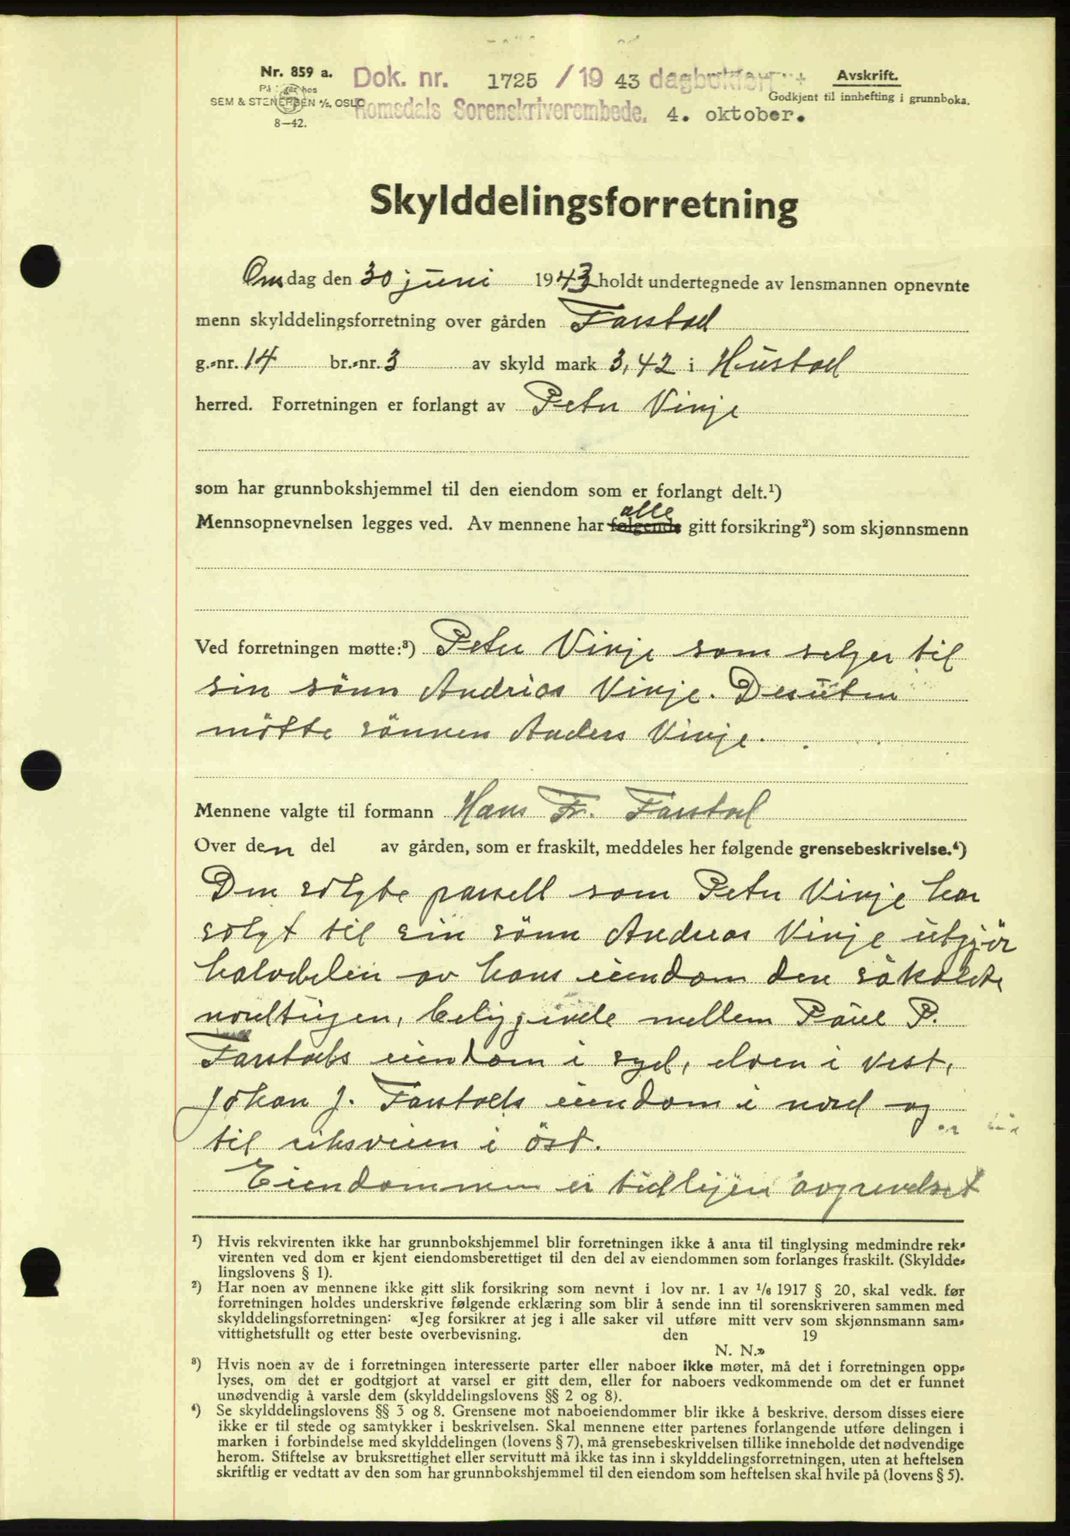 Nr. 859 a.
Dok. nr. 1725 / 19 43 dagbokført
Avskrift.
SEM & STENERSEN A/S, OSLO
Godkjent til innhefting i grunnboka.
Romsdals Sorenskriverembede. 4. oktober.
8—42.
Skylddelingsforretning
Om dag den 30 juni 1943 holdt undertegnede av lensmannen opnevnte
menn skylddelingsforretning over gården Farstad
g.-nr. 14 br.-nr. 3 av skyld mark 3,42 i Hustad
herred. Forretningen er forlangt av Peter Vinje
som har grunnbokshjemmel til den eiendom som er forlangt delt.¹)
alle
Mennsopnevnelsen legges ved. Av mennene har følgende gitt forsikring²) som skjønnsmenn
Ved forretningen møtte:³) Peter Vinje som selger til
sin sönn Andreas Vinje. Desuten
mötte sönnen Anders Vinje.
Mennene valgte til formann Hans Fr. Farstad
Over den del av gården, som er fraskilt, meddeles her følgende grensebeskrivelse.⁴)
Den solgte parsell som Peter Vinje har
solgt til sin sönn Andreas Vinje utgjör
halvdelen av hans eiendom den såkalte
nordtugen, beliggende mellem Paul P.
Farstads eiendom i syd, elven i vest,
Johan J. Farstads eiendom i nord og
til riksveien i öst.
Eiendommen er tidligere avgrendset
¹) Hvis rekvirenten ikke har grunnbokshjemmel blir forretningen ikke å anta til tinglysing medmindre rek-
virenten ved dom er kjent eiendomsberettiget til den del av eiendommen som forlanges fraskilt. (Skyldde-
lingslovens § 1).
²) Har noen av mennene ikke gitt slik forsikring som nevnt i lov nr. 1 av 1/6 1917 § 20, skal vedk. før
forretningen holdes underskrive følgende erklæring som blir å sende inn til sorenskriveren sammen med
skylddelingsforretningen: «Jeg forsikrer at jeg i alle saker vil utføre mitt verv som skjønnsmann sam-
vittighetsfullt og etter beste overbevisning. den 19
N. N.»
³) Hvis noen av de i forretningen interesserte parter eller naboer ikke møter, må det i forretningen opp-
lyses, om det er godtgjort at varsel er gitt dem, eller for naboers vedkommende om det er funnet
unødvendig å varsle dem (skylddelingslovens §§ 2 og 8).
⁴) Se skylddelingslovens §§ 3 og 8. Grensene mot naboeiendommer blir ikke å beskrive, dersom disses eiere
ikke er til stede og samtykker i beskrivelsen. Skal mennene etter partenes forlangende utføre delingen i
marken i forbindelse med skylddelingen (lovens § 7), må grensebeskrivelsen tillike inneholde det nødvendige
herom. Stiftelse av bruksrettighet eller servitutt må ikke tas inn i skylddelingsforretningen, uten at heftelsen
skriftlig er vedtatt av den som har grunnbokshjemmel til den eiendom som heftelsen skal hvile på (lovens § 5).